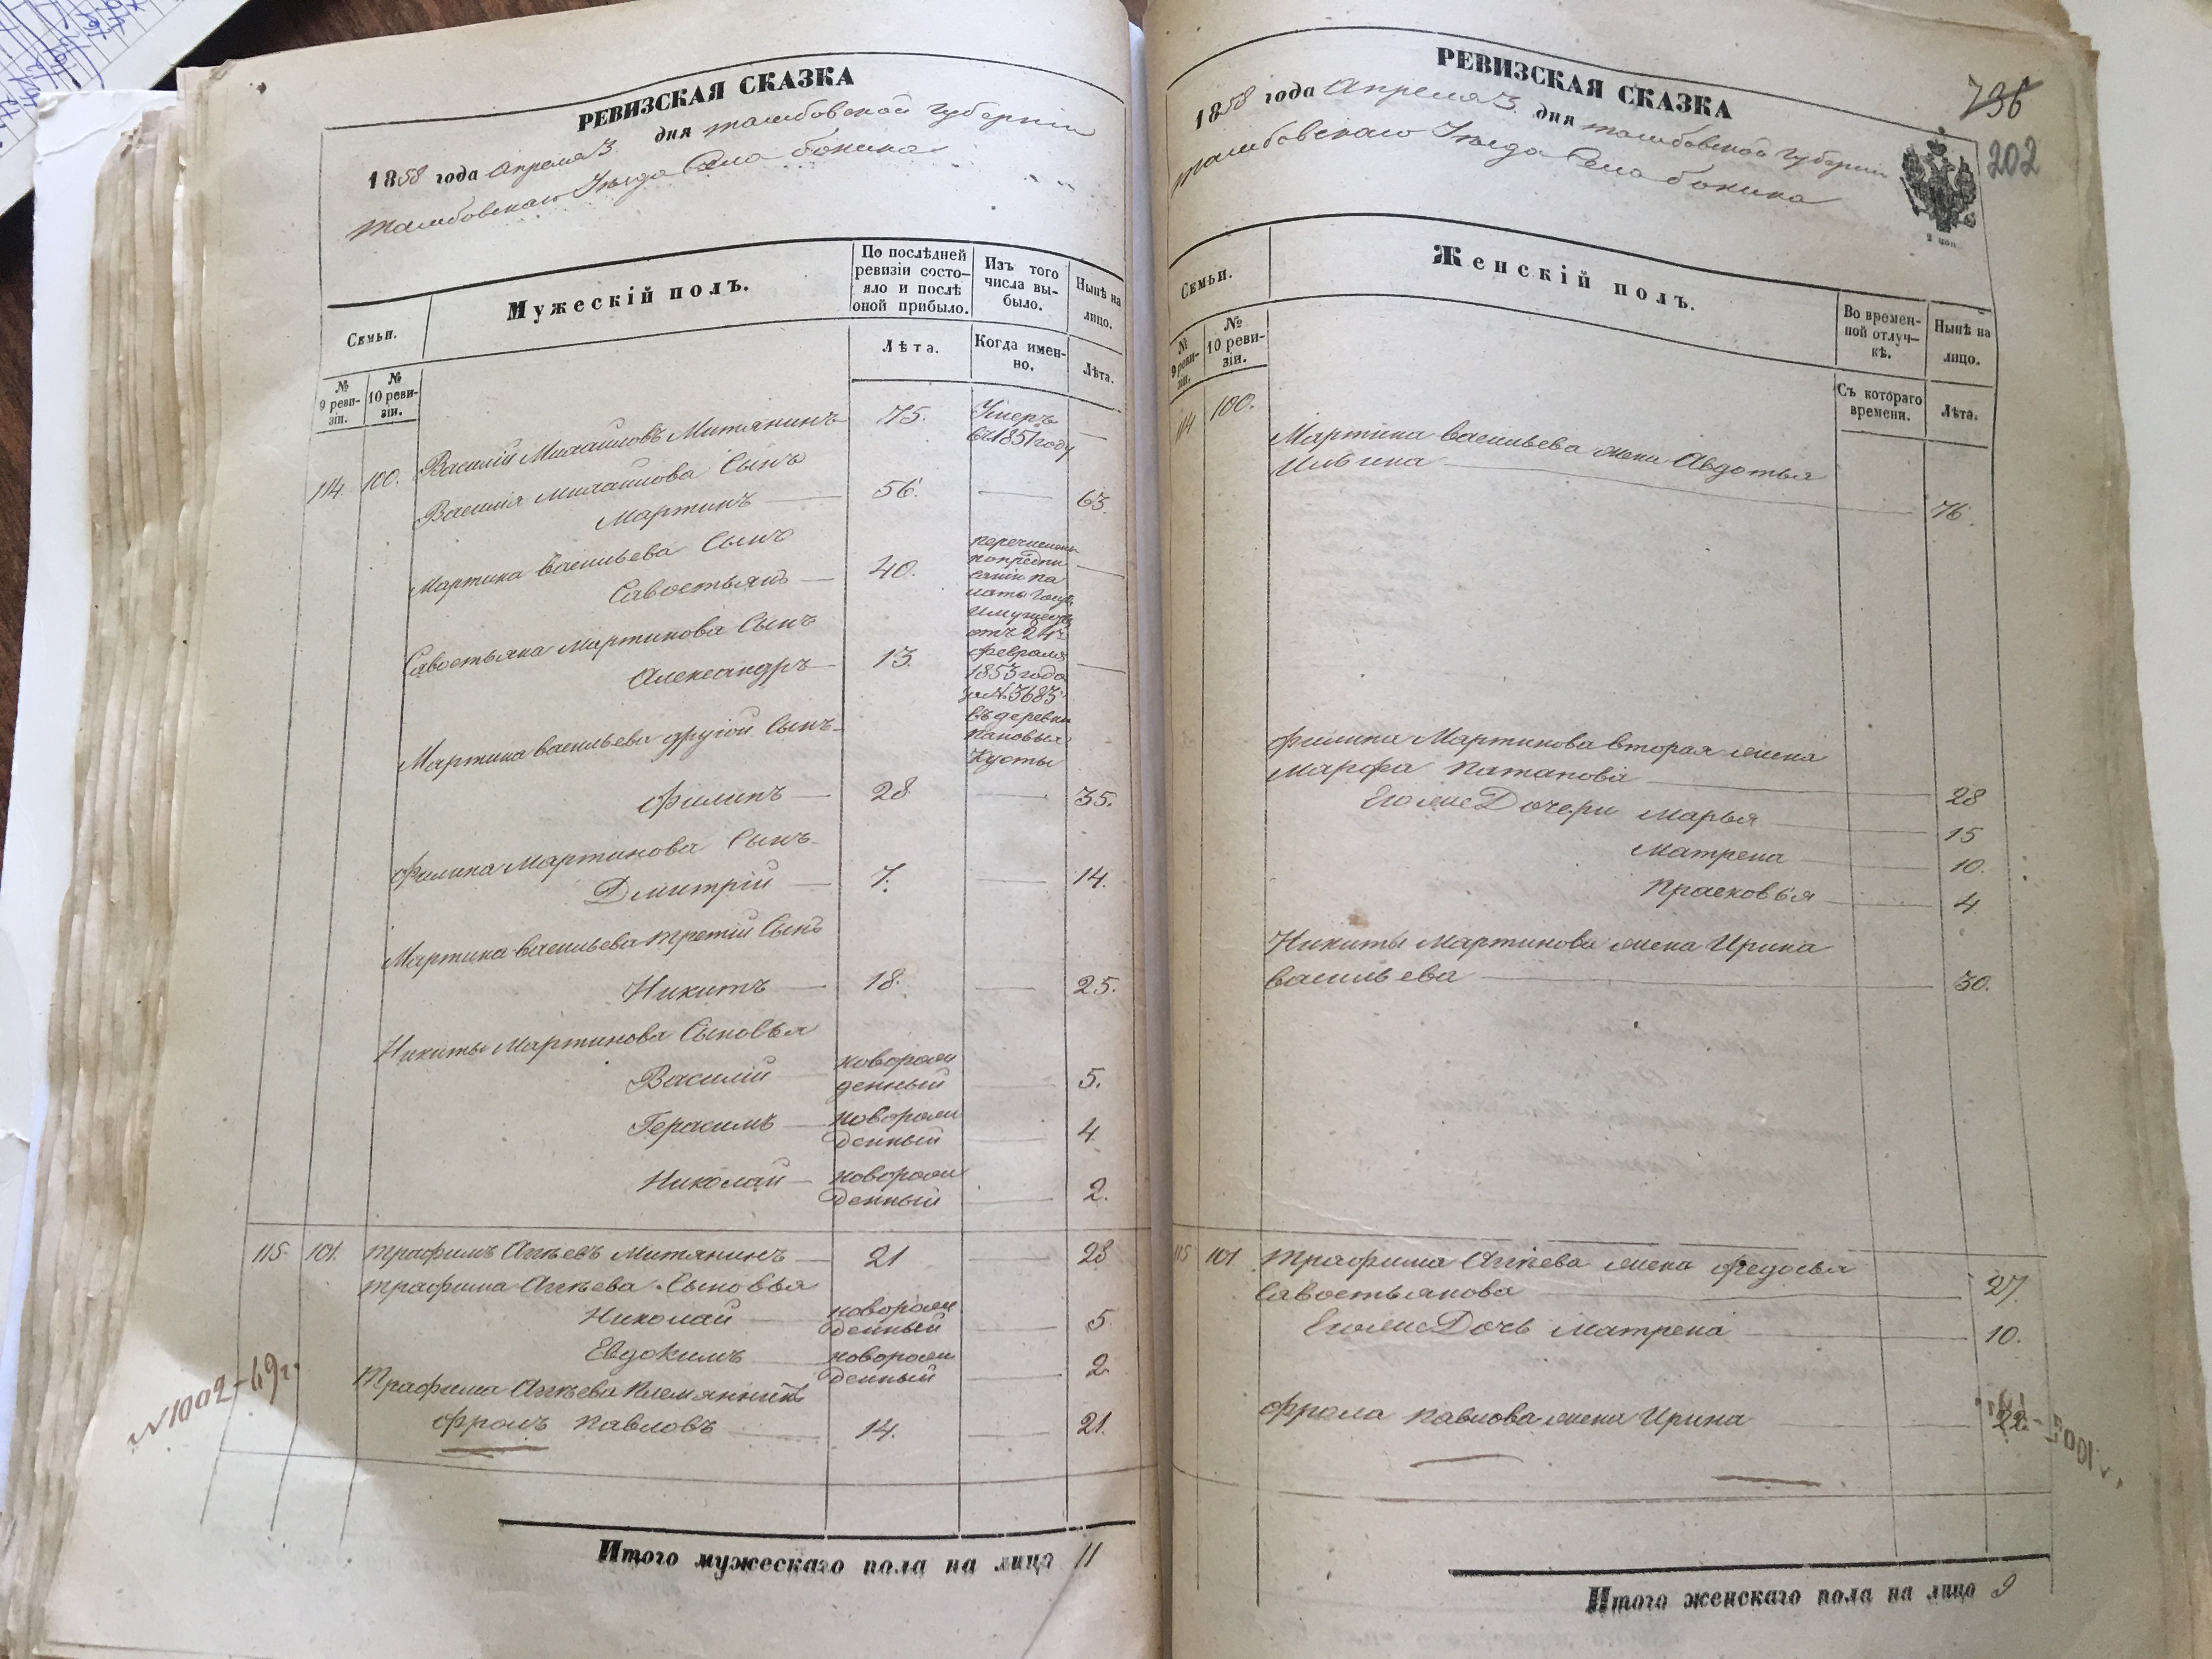 РЕВИЗСКАЯ СКАЗКА
1858 года Апреля 3. дня тамбовской губернии
тамбовскаго Уѣзда Села бокина
Семьи.
Мужескій полъ.
По послѣдней ревизіи состо-
яло и послѣ
оной прибыло.
Изъ того
числа вы-
было.
Нынѣ на
лицо.
№
9 реви-
зіи.
№
10 реви-
зіи.
Лѣта.
Когда имен-
но.
Лѣта.
114. 100. Василій Михайловъ Митянинъ 75. Умеръ
въ 1851 году
Василія Михайлова Сынъ
Мартинъ 56. 63.
Мартина васильева Сынъ
Савостьянъ 40.
перечислены
попредпи
санію па
латы Госуд.
Имуществ
отъ 24го
февраля
1853 года
за № 3683
въ деревню
пановы
Кусты
Савостьяна мартинова Сынъ
Александръ 13.
Мартина васильева другой Сынъ
Филипъ 28. 35.
Филипа Мартинова Сынъ
Дмитрій 7. 14.
Мартина васильева третій Сынъ
Никитъ 18. 25.
Никиты Мартинова Сыновья
Василій новорож
денный 5.
Герасимъ новорож
денный 4.
Николай новорож
денный 2.
115. 101. трафимъ Агѣевъ Митянинъ 21 28
трафима Агѣева Сыновья
Николай новорож
денный 5.
Евдокимъ новорож
денный 2
Трафима Агѣева Племянникъ
Фролъ Павловъ 14. 21.
№ 1002-49г.
Итого мужескаго пола на лицо 11
РЕВИЗСКАЯ СКАЗКА
736
202
1858 года Апреля 3. дня тамбовской губерніи
тамбовскаго Уѣзда Села бокина
Семьи.
Женскій полъ.
Во времен-
ной отлуч-
кѣ.
Нынѣ на
лицо.
№
9 реви-
зіи.
№
10 реви-
зіи.
Съ котораго
времени.
Лѣта.
114 100. Мартина васильева жена Авдотья
Ильина 76.
Филипа Мартинова вторая жена
Марфа Патапова 28
Его же Дочери Марья 15
Матрена 10.
Прасковья 4.
Никиты Мартинова жена Ирина
васильева 30.
115 101 Трафима Агѣева жена Федосья
Савостьянова 27.
Его же Дочь Матрена 10.
Фрола Павлова жена Ирина 22.
Итого женскаго пола на лицо 9